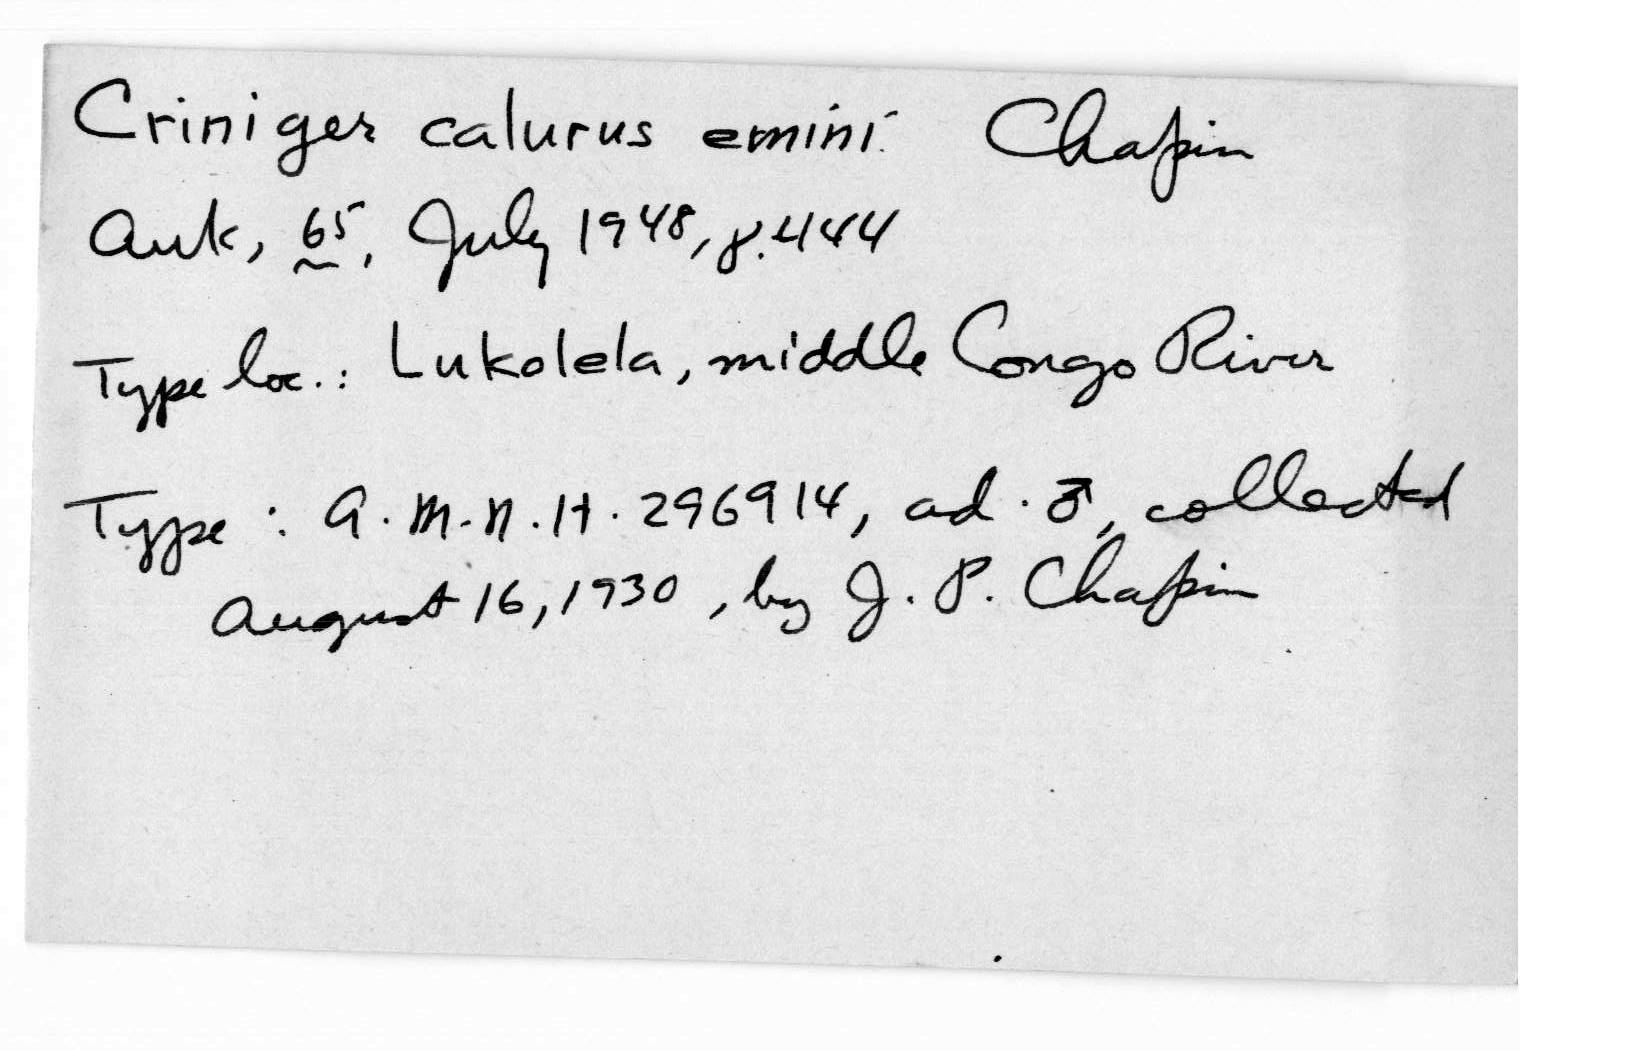 Criniger calurus emini Chapin
Auk, 65, July 1948, p. 444
Type loc.: Lukolela, middle Congo River
Type: A.M.N.H. 296914, ad. ♂, collected
August 16, 1930, by J. P. Chapin